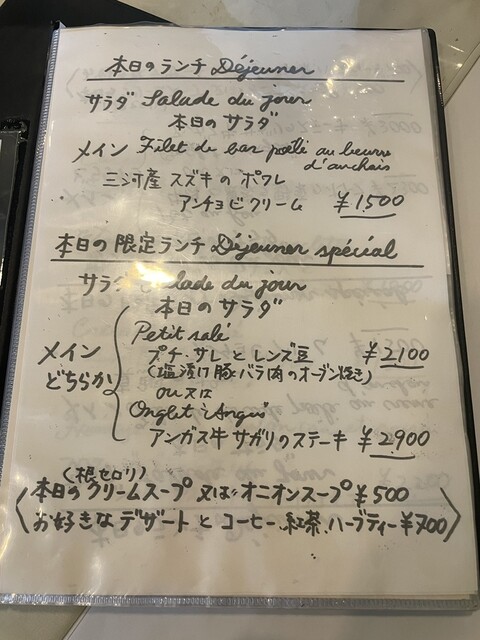 本日のランチ Déjeuner
サラダ Salade du jour
本日のサラダ
メイン Filet de bar poêlé au beurre
d'anchois
三河産 スズキのポワレ
アンチョビクリーム ¥1,500
本日の限定ランチ Déjeuner spécial
サラダ Salade du jour
本日のサラダ
メイン
どちらか
Petit salé
プチ・サレとレンズ豆 ¥2,100
(塩漬け豚バラ肉のオーブン焼き)
ou 又は
Onglet "Angus"
アンガス牛サガリのステーキ ¥2900
(根セロリ)
本日のクリームスープ 又は オニオンスープ ¥500
お好きなデザートとコーヒー、紅茶、ハーブティー ¥700